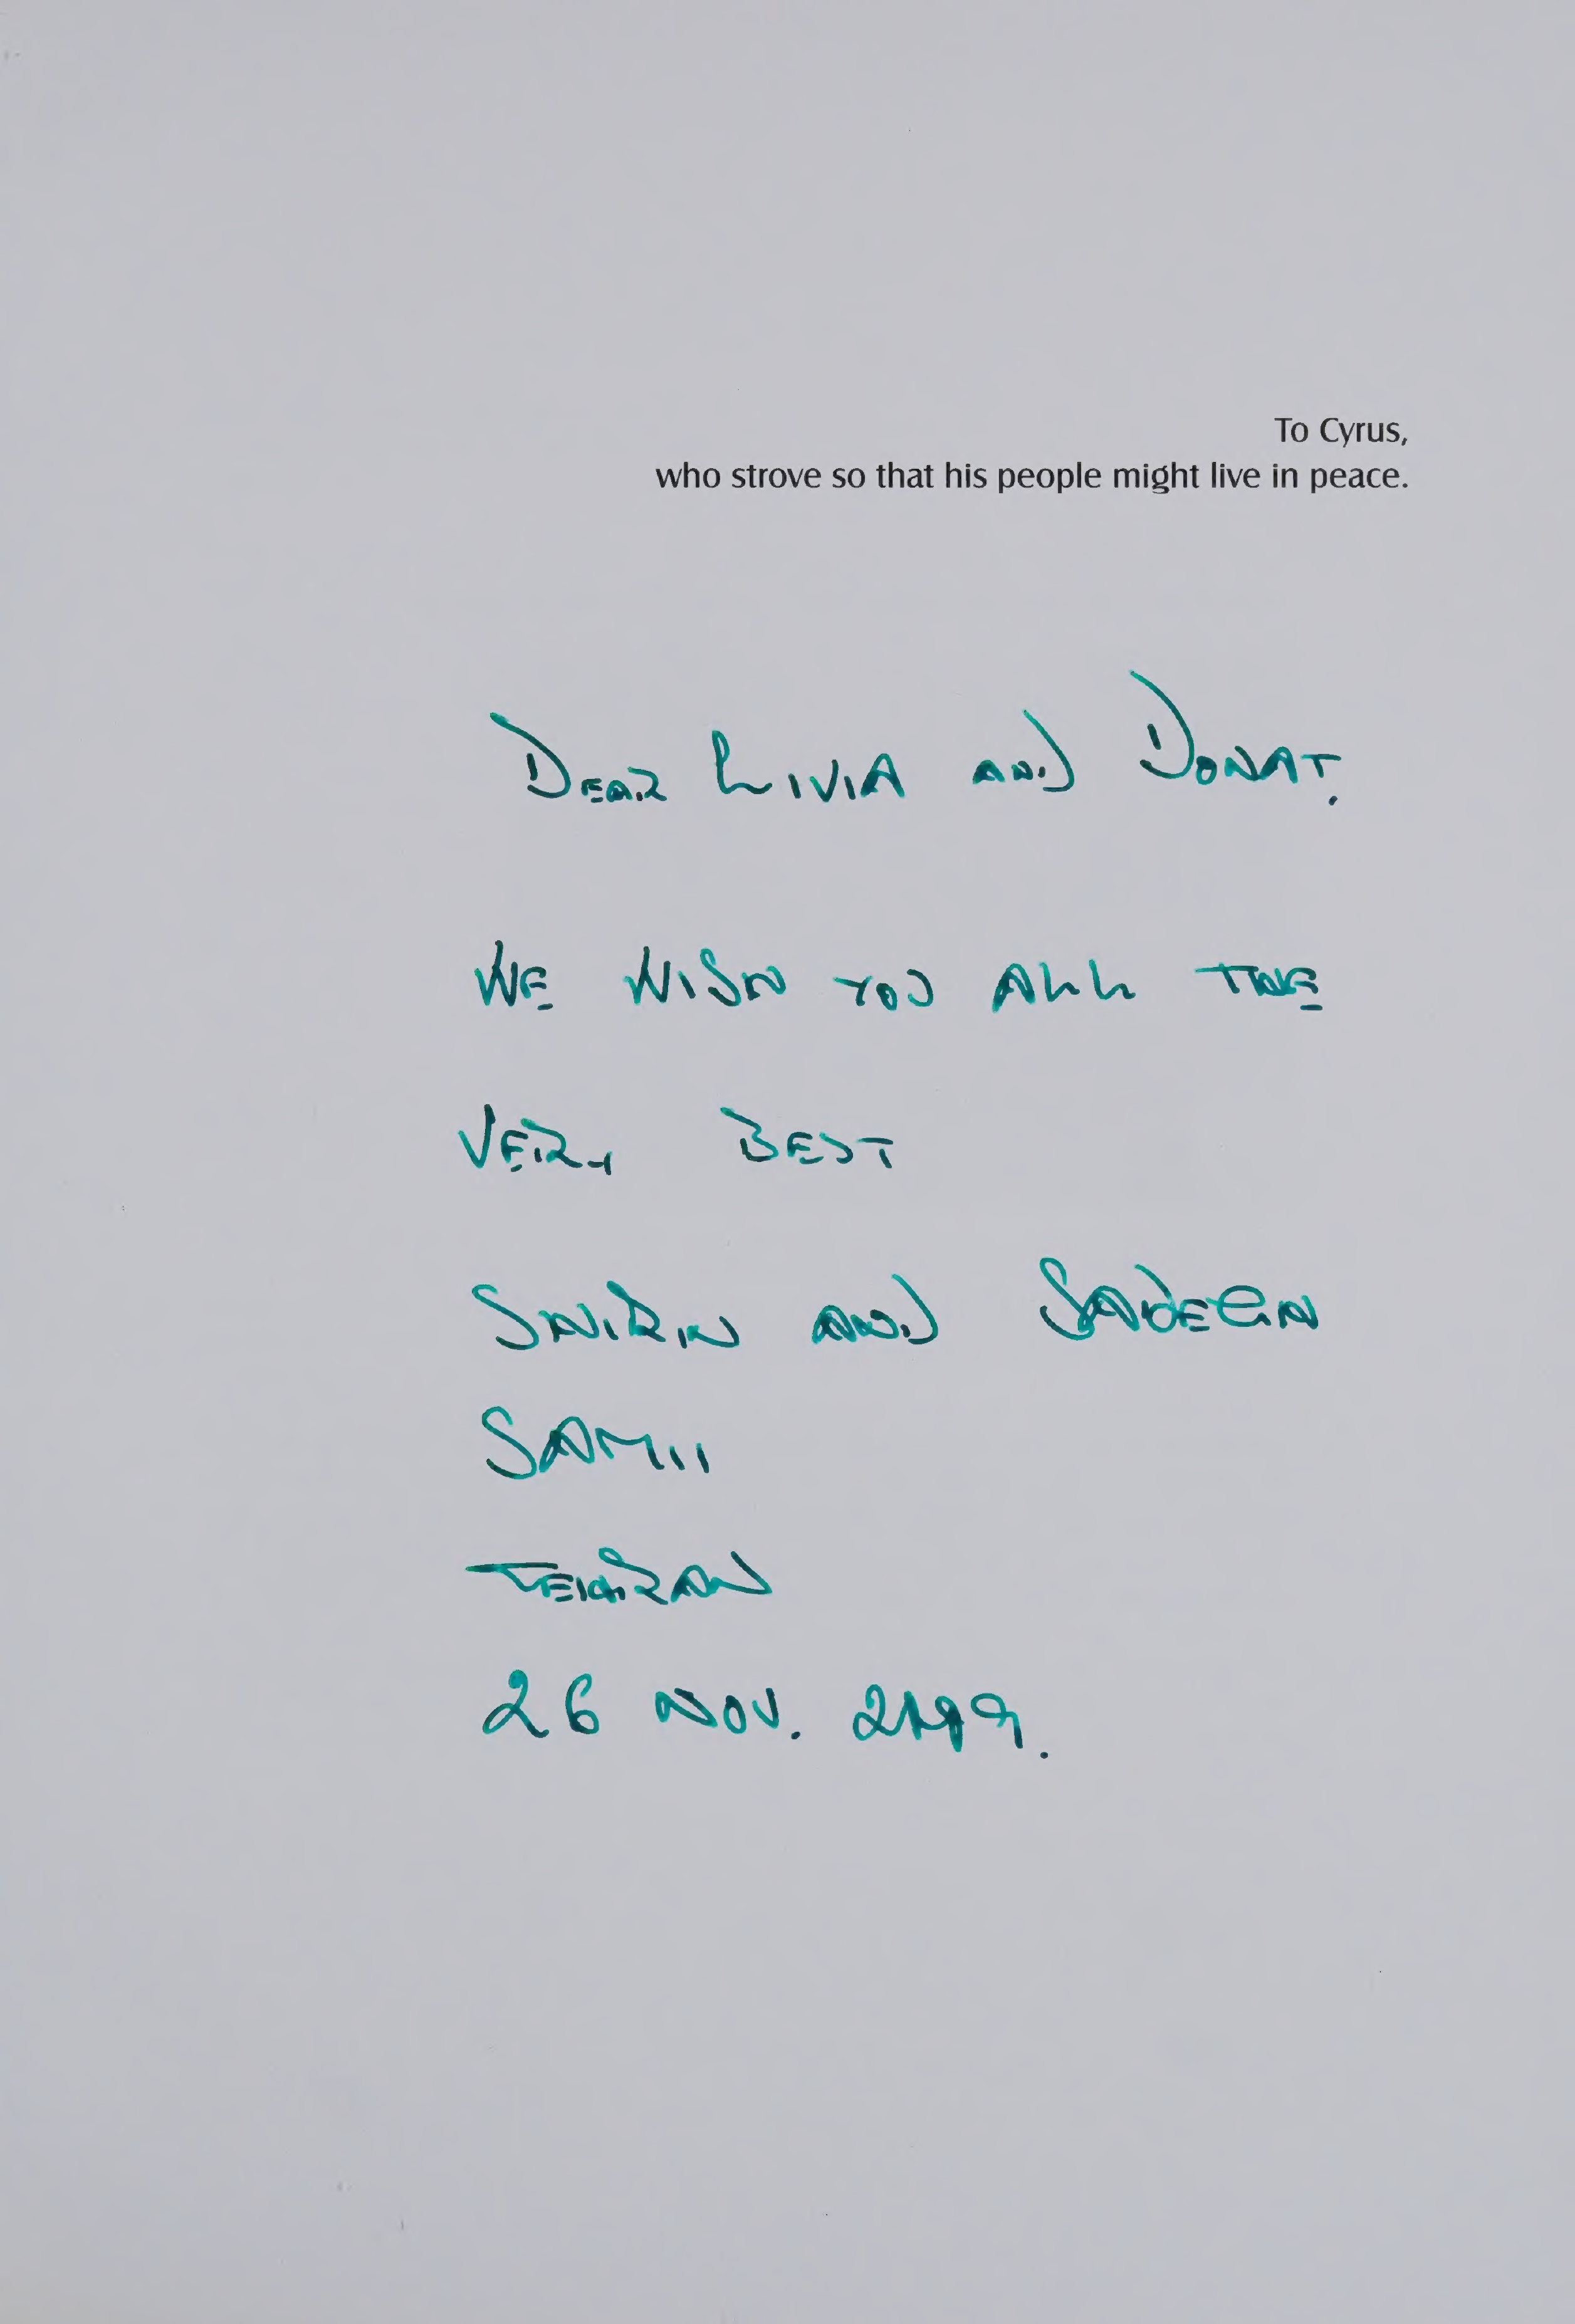 To Cyrus,
who strove so that his people might live in peace.
DEAR LIVIA AND DONAT.
WE WISH YOU ALL THE
VERY BEST
SHIRIN AND SADEGH
SAMII
TEHRAN
26 NOV.